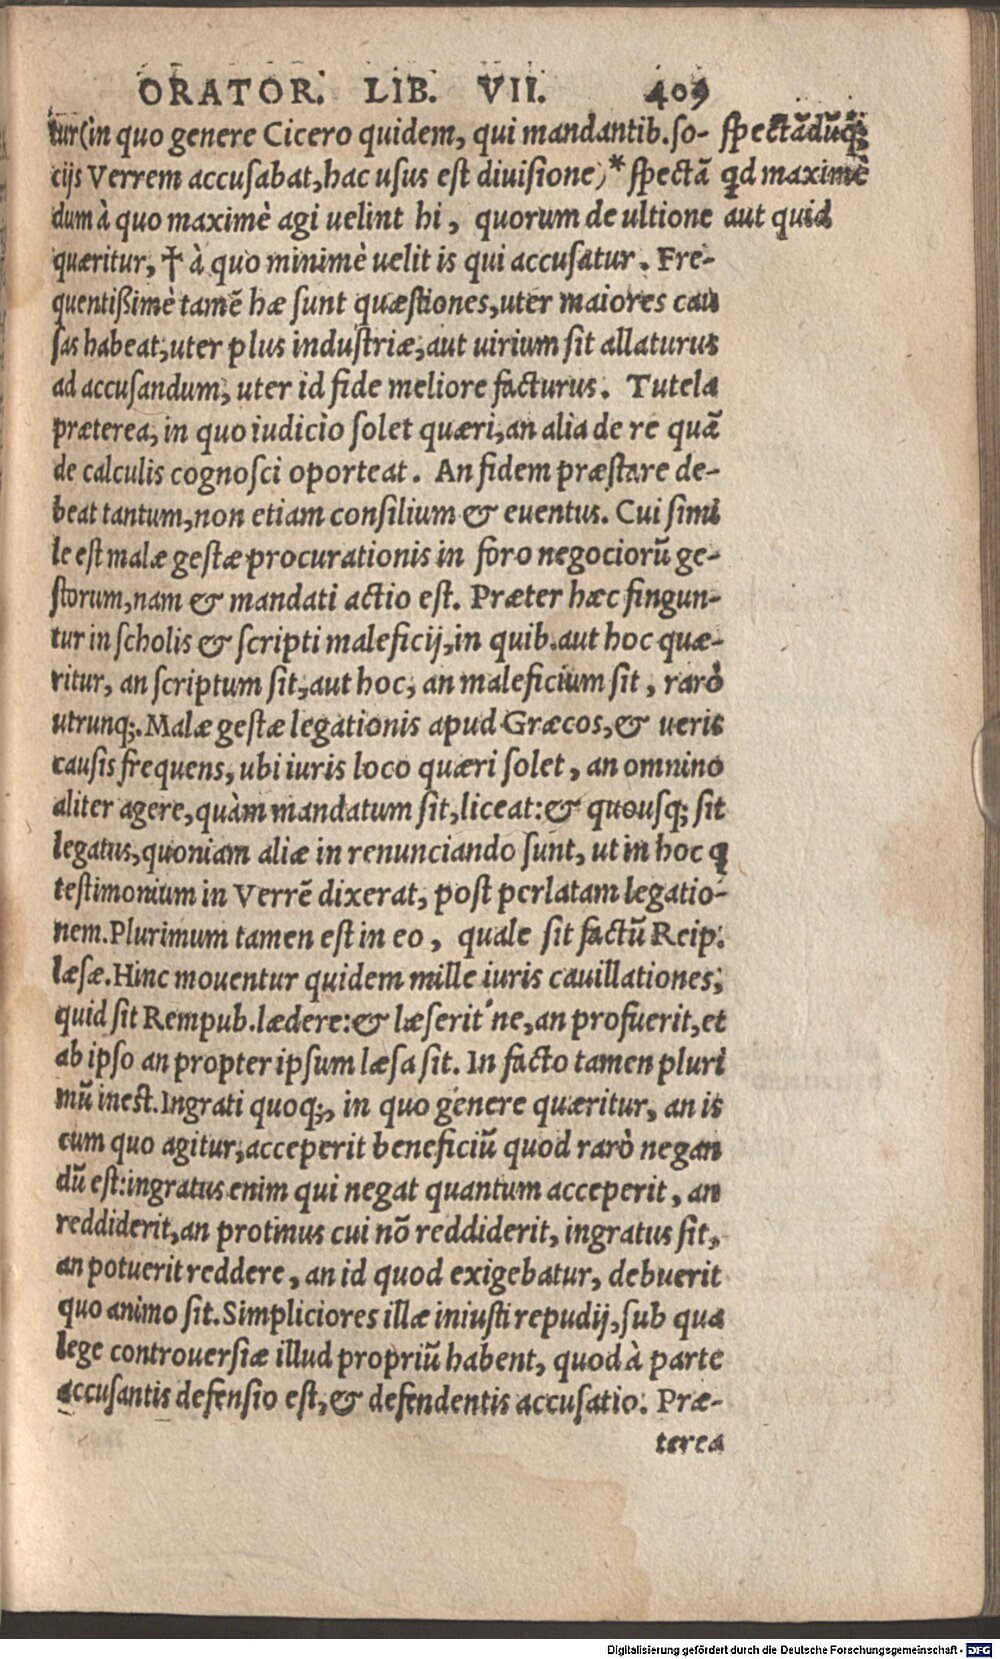 ORATOR. LIB. VII. 409
tur (in quo genere Cicero quidem, qui mandantib. so-
cijs Verrem accusabat, hac usus est diuisione)* spectā
dum à quo maximè agi uelint hi, quorum de ultione
quæritur, † à quo minimè uelit is qui accusatur. Fre-
quentißimè tamē hæ sunt quæstiones, uter maiores cau
sas habeat, uter plus industriæ, aut uirium sit allaturus
ad accusandum, uter id fide meliore facturus. Tutela
præterea, in quo iudicio solet quæri, an alia de re quā
de calculis cognosci oporteat. An fidem præstare de-
beat tantum, non etiam consilium & euentus. Cui simi
le est malæ gestæ procurationis in foro negociorū ge-
storum, nam & mandati actio est. Præter hæc fingun-
tur in scholis & scripti maleficij, in quib. aut hoc quæ-
ritur, an scriptum sit, aut hoc, an maleficium sit, rarò
utrunq;. Malæ gestæ legationis apud Græcos, & ueris
causis frequens, ubi iuris loco quæri solet, an omnino
aliter agere, quàm mandatum sit, liceat: & quousq; sit
legatus, quoniam aliæ in renunciando sunt, ut in hoc q
testimonium in Verrē dixerat, post perlatam legatio-
nem. Plurimum tamen est in eo, quale sit factū Reip.
læsæ. Hinc mouentur quidem mille iuris cauillationes,
quid sit Rempub. lædere: & læserit'ne, an profuerit, et
ab ipso an propter ipsum læsa sit. In facto tamen pluri
mū inest. Ingrati quoq;, in quo genere quæritur, an is
cum quo agitur, acceperit beneficiū quod rarò negan
dū est: ingratus enim qui negat quantum acceperit, an
reddiderit, an protinus cui nō reddiderit, ingratus sit,
an potuerit reddere, an id quod exigebatur, debuerit
quo animo sit. Simpliciores illæ iniusti repudij, sub qua
lege controuersiæ illud propriū habent, quod à parte
accusantis defensio est, & defendentis accusatio. Præ-
terea
spectādūq;
qd maximè
aut quid
Digitalisierung gefördert durch die Deutsche Forschungsgemeinschaft - DFG